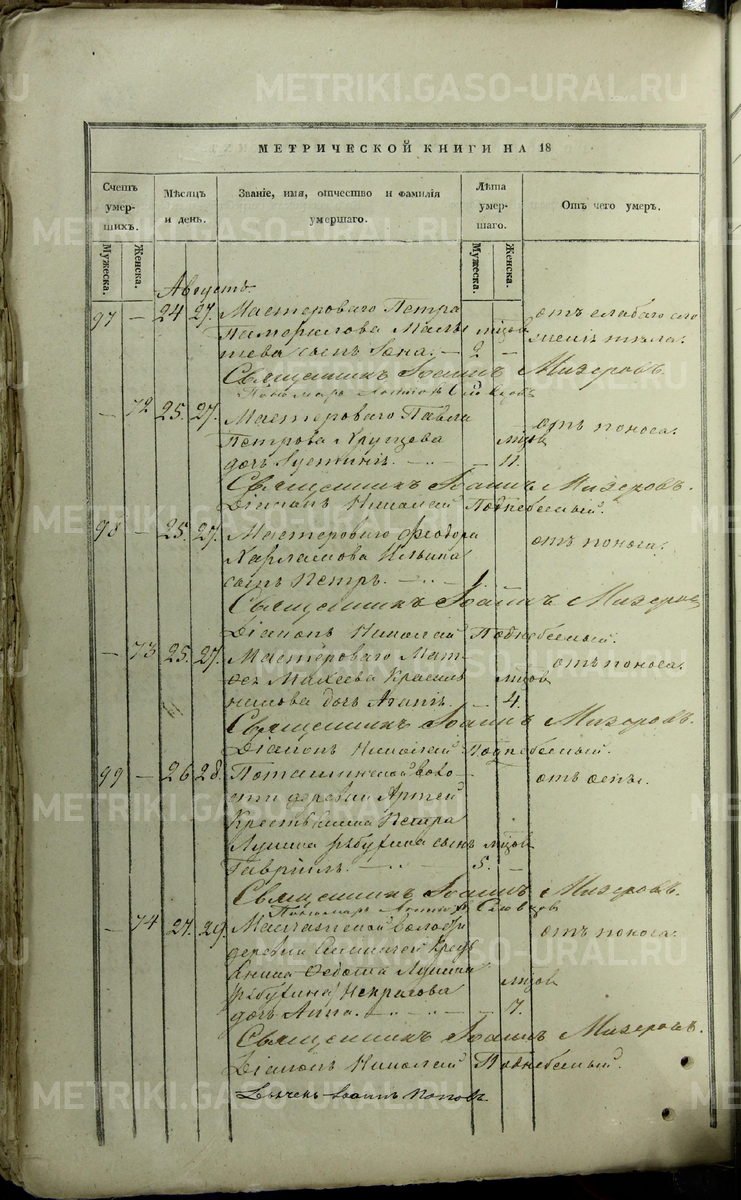 METRIKI.GASO-URAL.RU
МЕТРИЧЕСКОЙ КНИГИ НА 18
Счетъ умер-шихъ.
Мужеска.
Женска.
Мѣсяцъ и день.
Званіе, имя, отчество и фамилія умершаго.
Лѣта умер-шаго.
Мужеска.
Женска.
Отъ чего умеръ.
Августъ.
97 — 24 27. Мастероваго Петра отъ слабаго сло
Мальі мцов
шева сынъ 2 — женія тѣла.
Священникъ Іоаннъ Мизеровъ.
Пономарь Словцовъ
— 72 25. 27. Мастероваго Павла отъ поноса.
Петрова мцов
дочь Іустинія. — 11.
Священникъ Іоаннъ Мизеровъ.
Діаконъ Николай Поднебесный.
98 — 25. 27. Мастероваго Феодора отъ поноса.
Харламова Ильина
сынъ Петръ. 1. —
Священникъ Іоаннъ Мизеровъ
Діаконъ Николай Поднебесный.
— 73 25. 27. Мастероваго Мат- отъ поноса.
фея Мокеева Красиль мцов
никова дочь Агапія. 4.
Священникъ Іоаннъ Мизеровъ.
Діаконъ Николай Поднебесный.
99 — 26 28. Поташинской воло- отъ оспы.
сти деревни Артей
Крестьянина Петра
сынъ мцов
Гавріилъ. 5. —
Священникъ Іоаннъ Мизеровъ.
Пономарь Словцовъ
— 74 27. 29. волости отъ поноса.
деревни Крест
янина Федота мцов
Некрасова
дочь Анна. — 7.
Священникъ Іоаннъ Мизеровъ.
Діаконъ Николай Поднебесный.
Іоаннъ Поповъ.